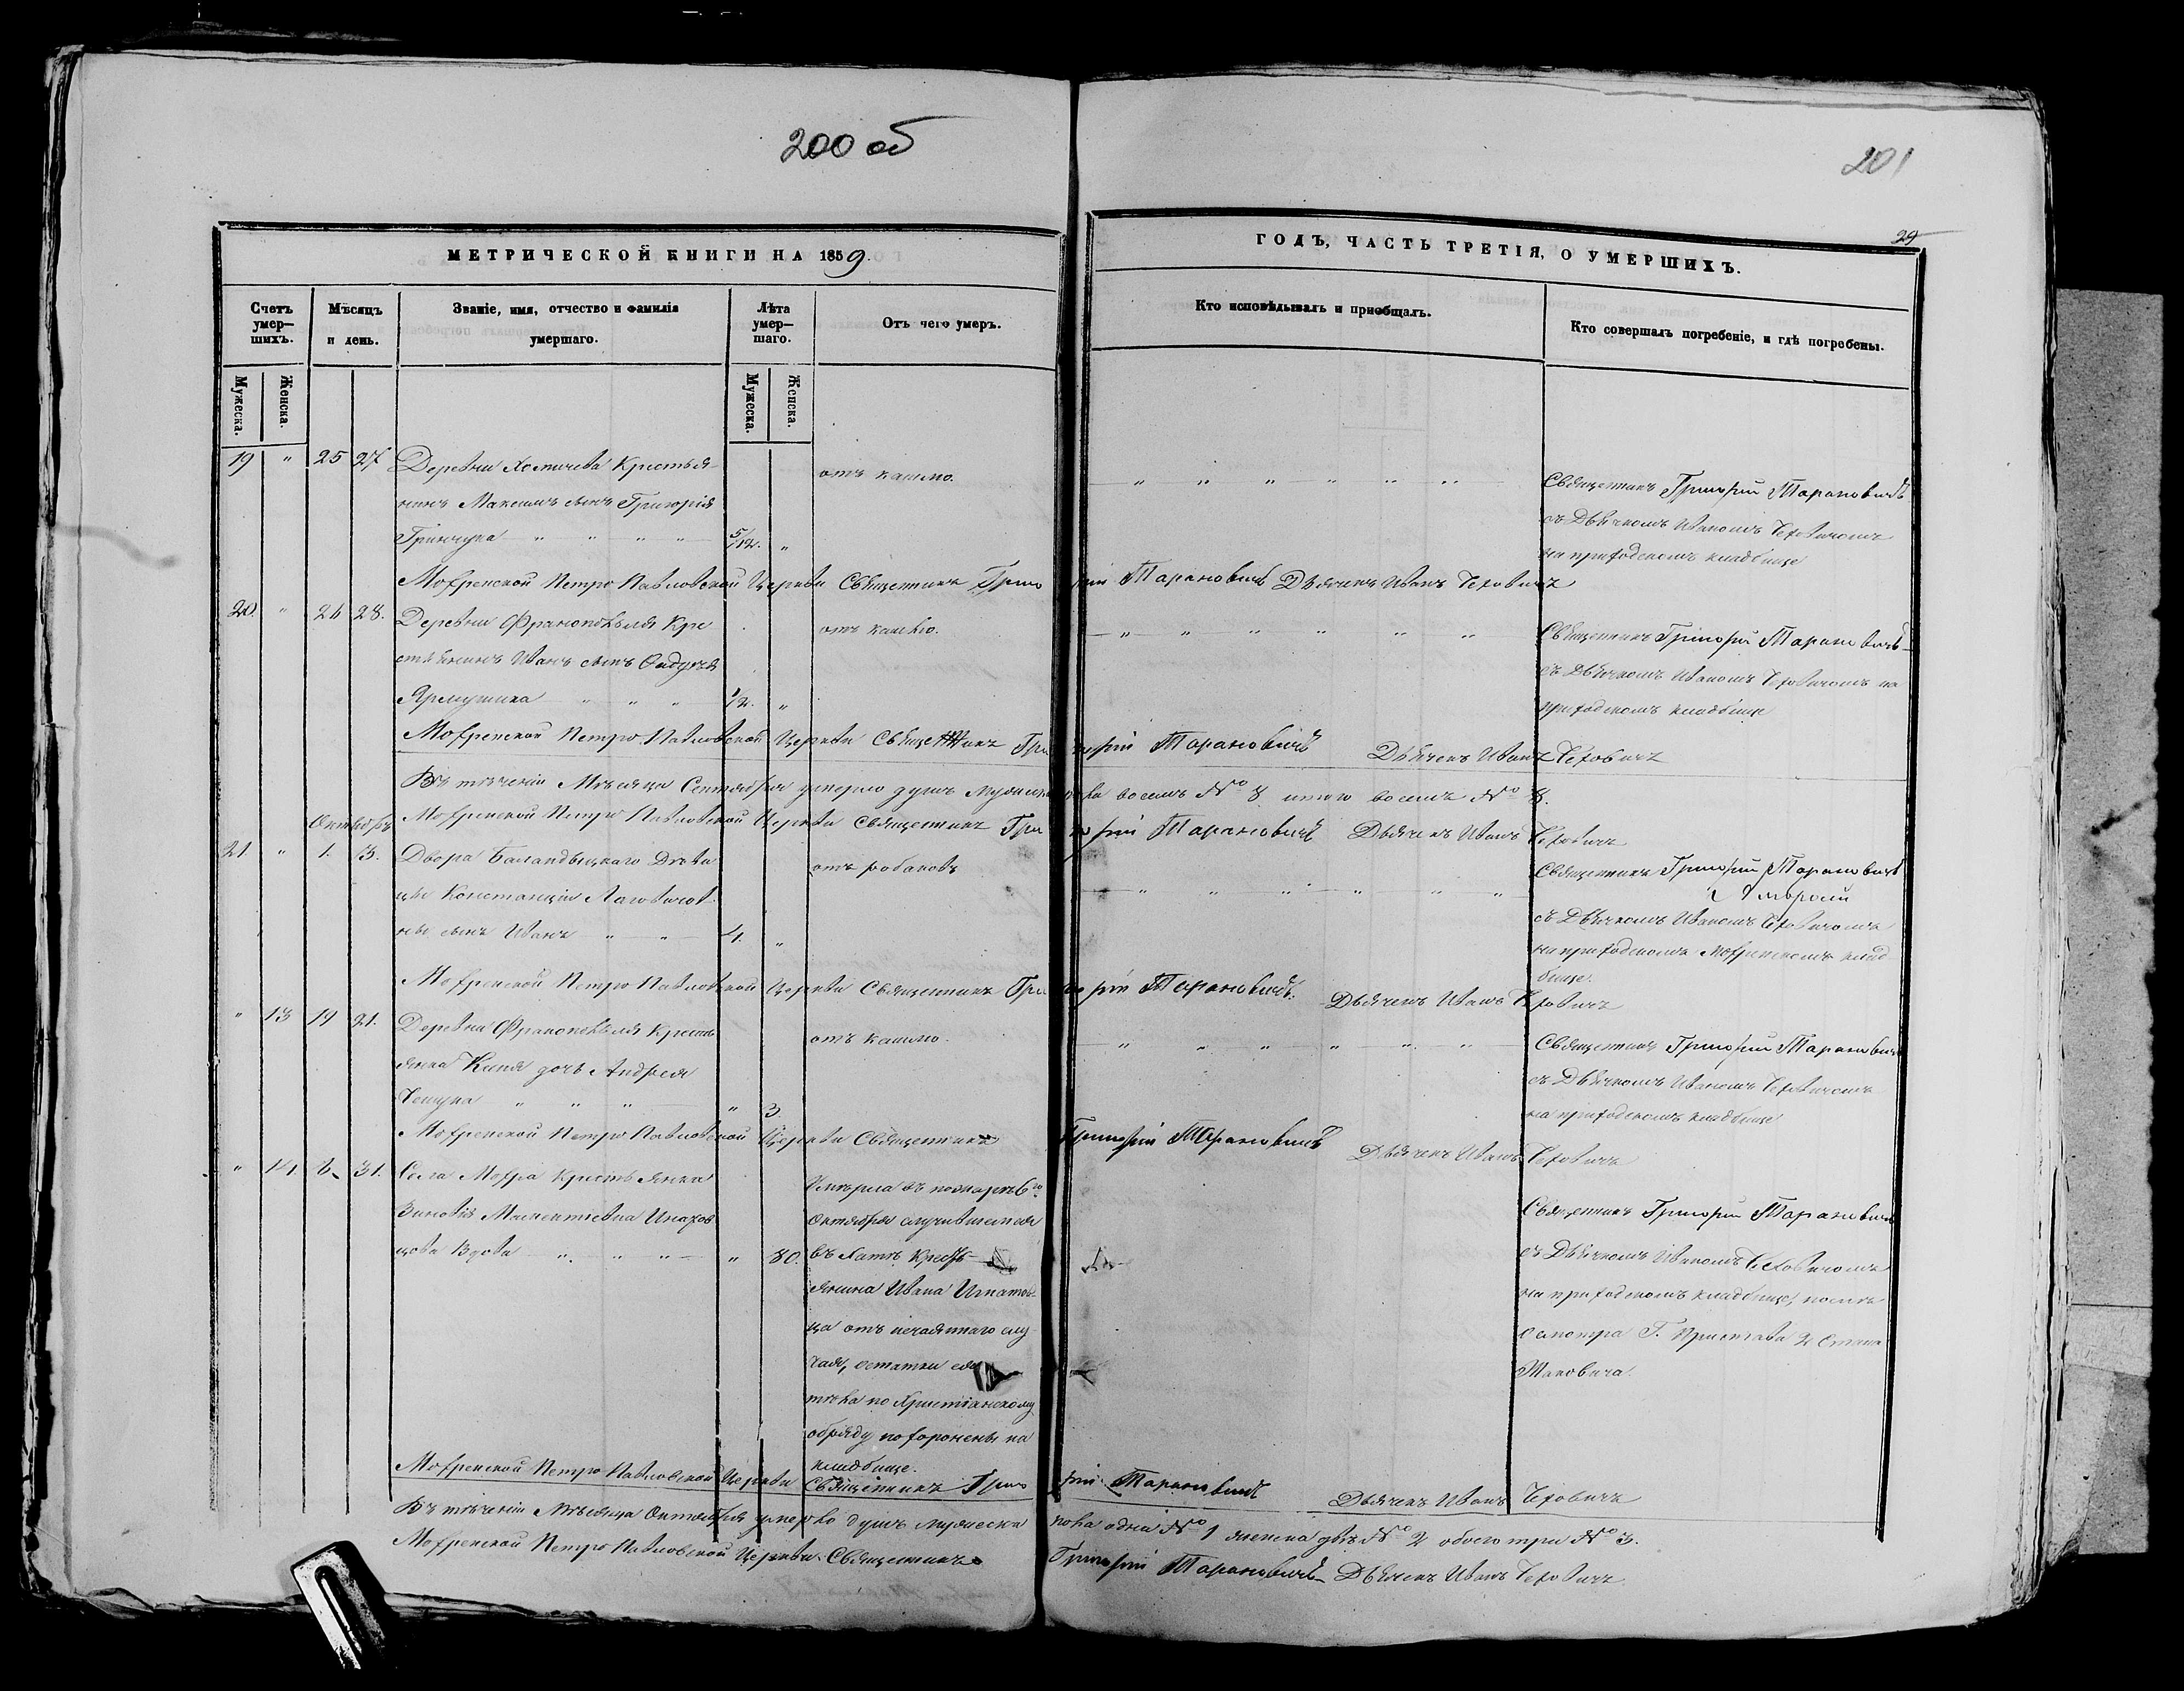 200 об
201
29
МЕТРИЧЕСКОЙ КНИГИ НА 1859.
ГОДЪ, ЧАСТЬ ТРЕТІЯ, О УМЕРШИХЪ.
Счетъ умер— шихъ.
Мѣсяцъ и день.
Званіе, имя, отчество и фамилія умершаго.
Лѣта умер— шаго.
Отъ чего умеръ.
Кто исповѣдывалъ и приобщалъ.
Кто совершалъ погребеніе, и гдѣ погребены.
Мужеска.
Женска.
Мужеска.
Женска.
19 " 25 27 Деревни Хомичева Крестья-
нинъ Максимъ сынъ Григорія
Гринчука " " " " 5/12. "
отъ кашлю.
" " " " " "
Священникъ Григорій Тарановичъ
съ Дьячкомъ Иваномъ Чеховичомъ
на приходскомъ кладбище
Мохренской Петро Павловской Церкви Священникъ Григорій Тарановичъ Дьячекъ Иванъ Чеховичъ
20. " 26 28. Деревни Франополья Кре
стьянинъ Иванъ сынъ
Ярмушика " " " 1/2. "
отъ кашлю.
" " " " " "
Священникъ Григорій Тарановичъ
съ Дьячкомъ Иваномъ Чеховичомъ на
приходскомъ кладбище
Мохренской Петро Павловской Церкви Священникъ Григорій Тарановичъ Дьячекъ Иванъ Чеховичъ
Въ теченіи Мѣсяца Сентября умерло душъ мужеска пола восемъ № 8 итого восемъ № 8.
Мохренской Петро Павловской Церкви Священникъ Григорій Тарановичъ Дьячекъ Иванъ Чеховичъ
Октябрь
21. " 1. 3. Двора Баландыцкаго Дѣви
цы Констанціи
ны сынъ Иванъ " " 4. "
отъ робаковъ
" " " " " "
Священникъ Григорій Тарановичъ
съ Дьячкомъ Иваномъ Чеховичомъ
на приходскомъ Мохренскомъ клад
бище.
Мохренской Петро Павловской Церкви Священникъ Григорій Тарановичъ. Дьячекъ Иванъ Чеховичъ
" 13 19 21. Деревни Франополья Кресть
янка дочь Андрея
" " " " 3.
отъ кашлю.
" " " " " "
Священникъ Григорій Тарановичъ
съ Дьячкомъ Иваномъ Чеховичомъ
на приходскомъ кладбище
Мохренской Петро Павловской Церкви Священникъ Григорій Тарановичъ Дьячекъ Иванъ Чеховичъ
" 14 31. Села Мохра Крестьянка
Зиновія
Вдова " " " " 80.
Умерла въ пожарѣ 6го
Октября случившемся
въ хатѣ Кресть
янина Ивана
отъ нечаяннаго слу
чая, остатки ея
тѣла по Христіанскому
обряду похоронены на
кладбище.
Священникъ Григорій Тарановичъ
съ Дьячкомъ Иваномъ Чеховичомъ
на приходскомъ кладбище, послѣ
осмотра Г. Пристава 2 Стана
Мохренской Петро Павловской Церкви Священникъ Григорій Тарановичъ Дьячекъ Иванъ Чеховичъ
Въ теченіи Мѣсяца Октября умерло душъ мужеска пола одна № 1 женска двѣ № 2 обоего три № 3.
Мохренской Петро Павловской Церкви Священникъ Григорій Тарановичъ Дьячекъ Иванъ Чеховичъ